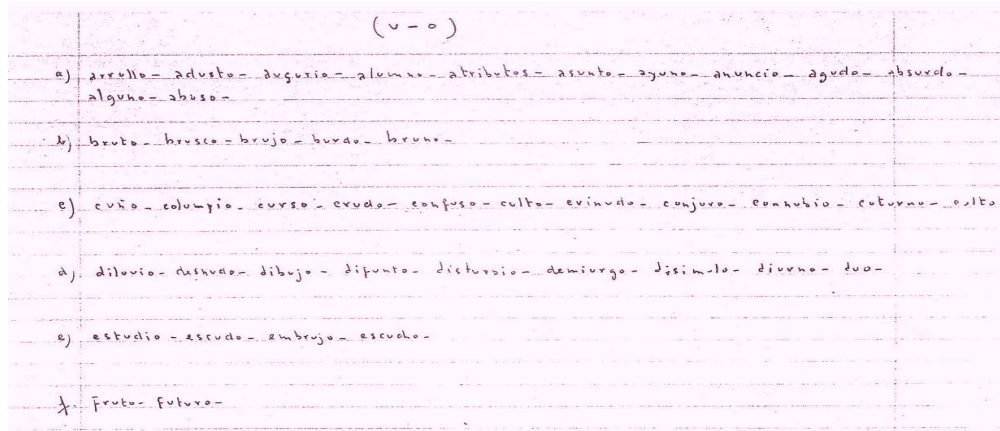 (u-o)
a) arrullo - adusto - augurio - alumno - atributos - asunto - ayuno - anuncio - agudo - absurdo -
alguno - abuso -
b) bruto - brusco - brujo - burdo - bruno -
c) cuño - columpio - curso - crudo - confuso - culto - crinudo - conjuro - connubio - coturno - culto
d) diluvio - desnudo - dibujo - difunto - disturbio - demiurgo - disimulo - diurno - duo -
e) estudio - escudo - embrujo - escucho -
f. Fruto - Futuro -